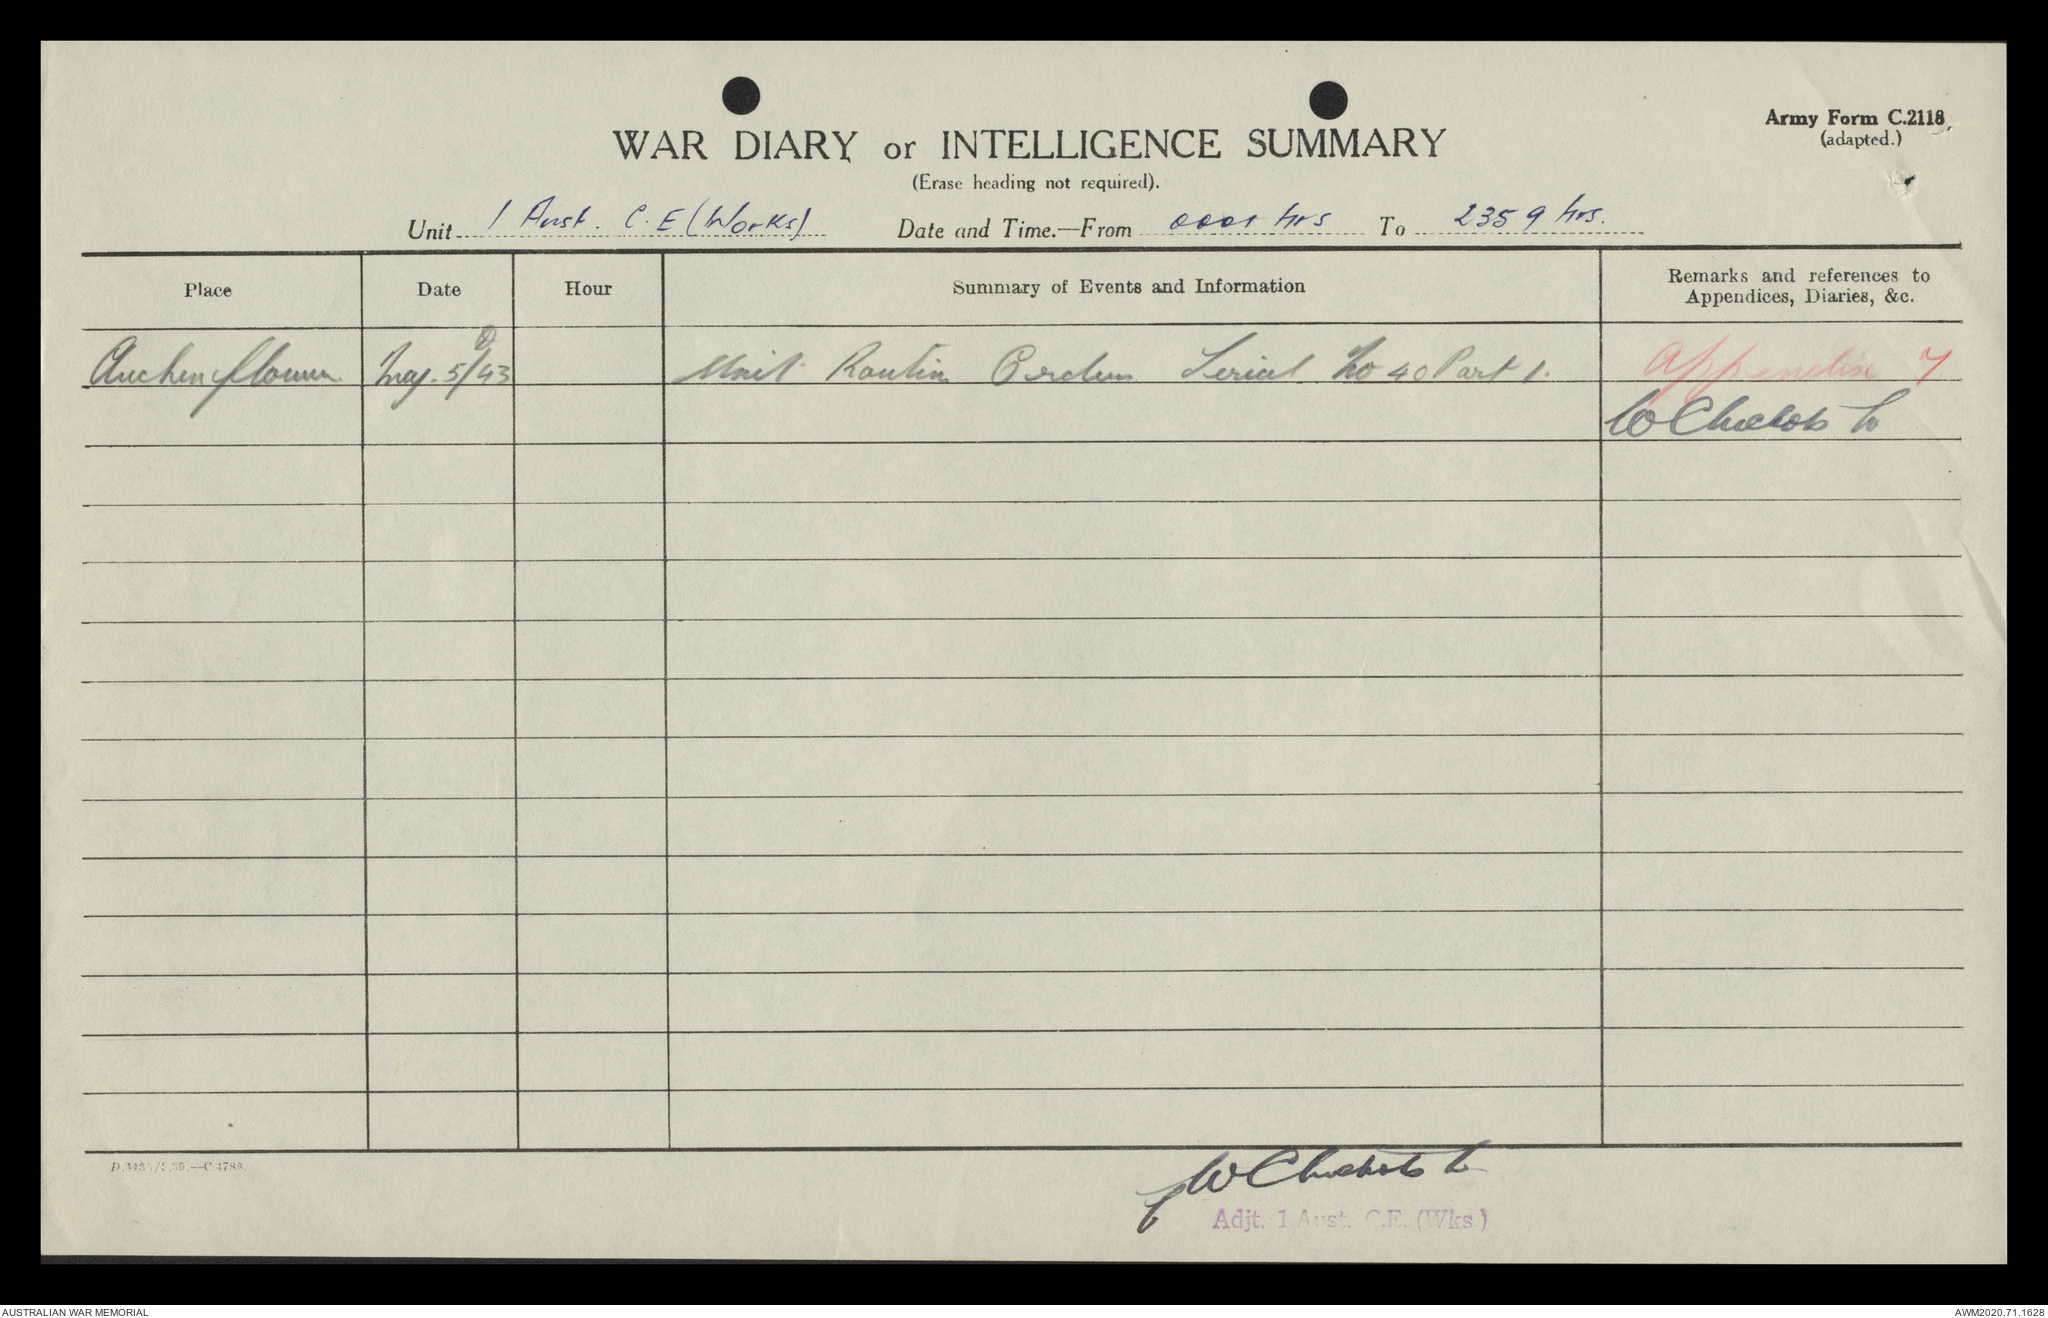 Army Form C.2118
(adapted.)
WAR DIARY or INTELLIGENCE SUMMARY
(Erase heading not required).
Unit 1 Aust. C.E (Works) Date and Time.—From 0001 hrs To 2359 hrs.
Place Date Hour Summary of Events and Information Remarks and references to
Appendices, Diaries, &c.
Auchenflower May. 5/43 Unit Routin Orders Serial No 40 Part 1. Appendix 7
W
W
Adjt. 1 Aust. C.E. (Wks)
AUSTRALIAN WAR MEMORIAL
AWM2020.71.1628